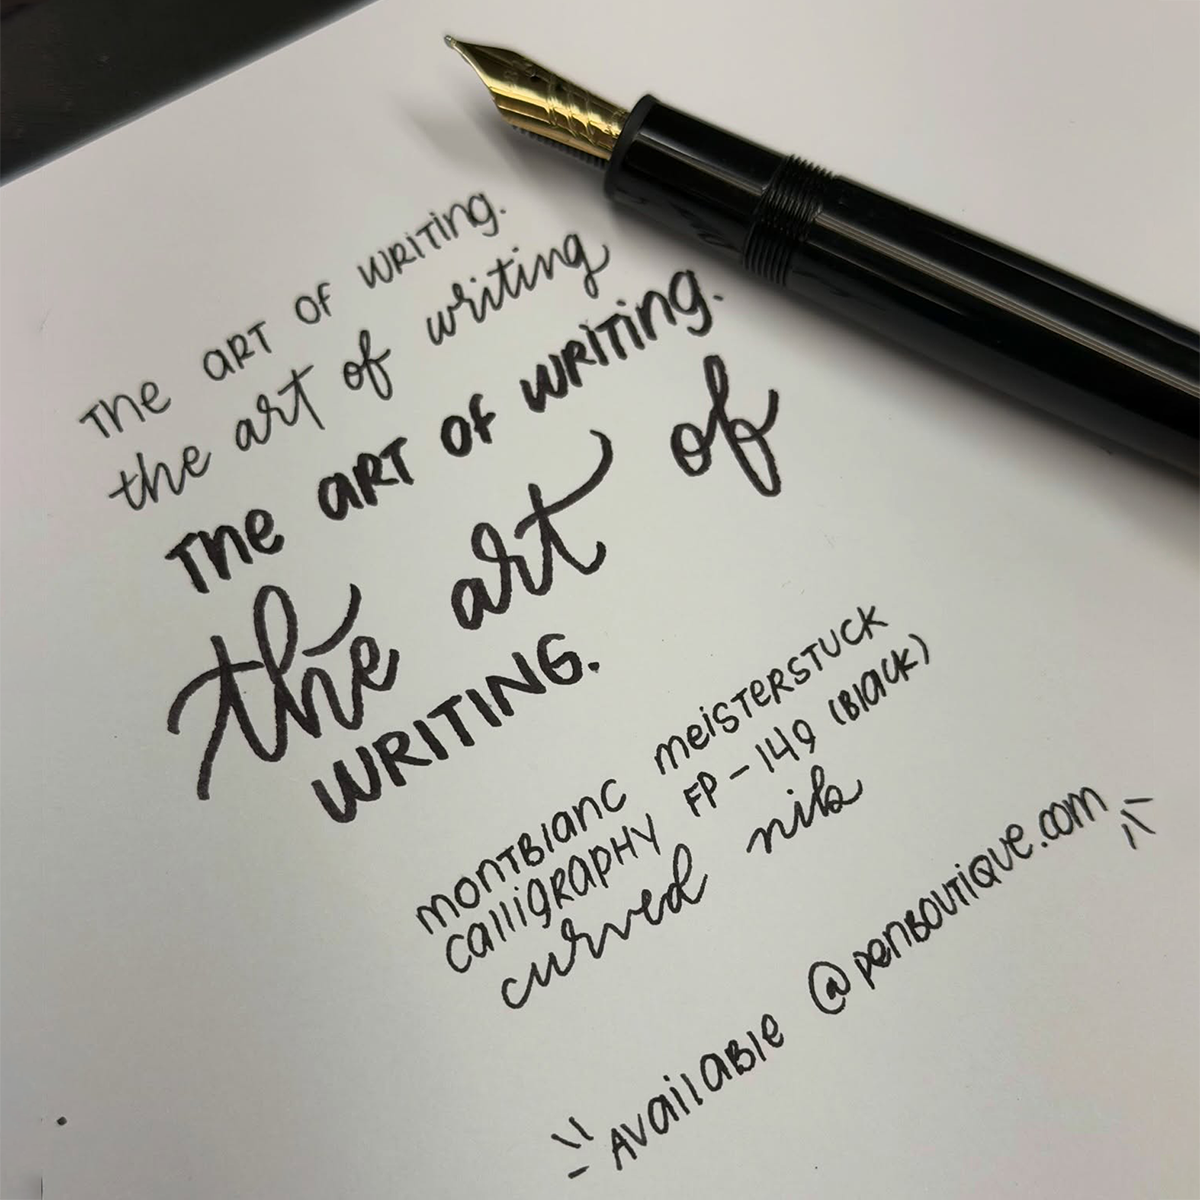 THE ART OF WRITING.
the art of writing
THE ART OF WRITING.
the art of
WRITING.
MONTBLANC MEISTERSTUCK
CALLIGRAPHY FP-149 (BLACK)
curved nib
AVAILABLE @PENBOUTIQUE.COM